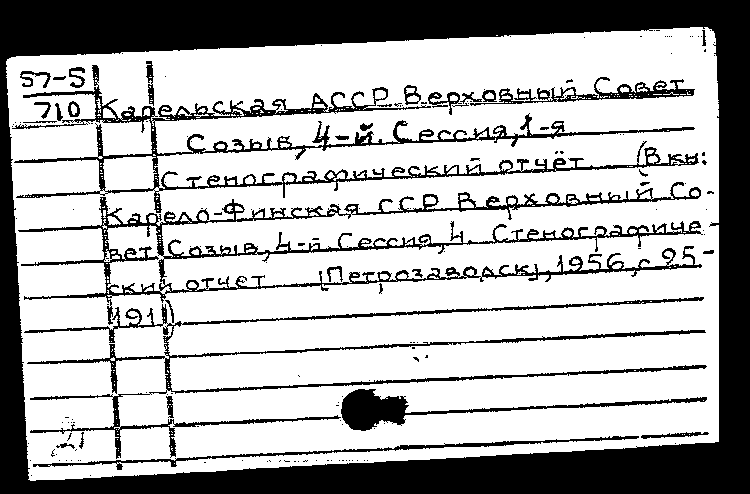 57-5
710
Карельская АССР Верховный Совет
Созыв, 4-й. Сессия, 1-я
Стенографический отчёт (В кн:
Карело-Финская ССР Верховный Со-
вет Созыв, 4-й. Сессия, 4. Стенографиче-
ский отчет [Петрозаводск], 1956, с 95-
191)
2